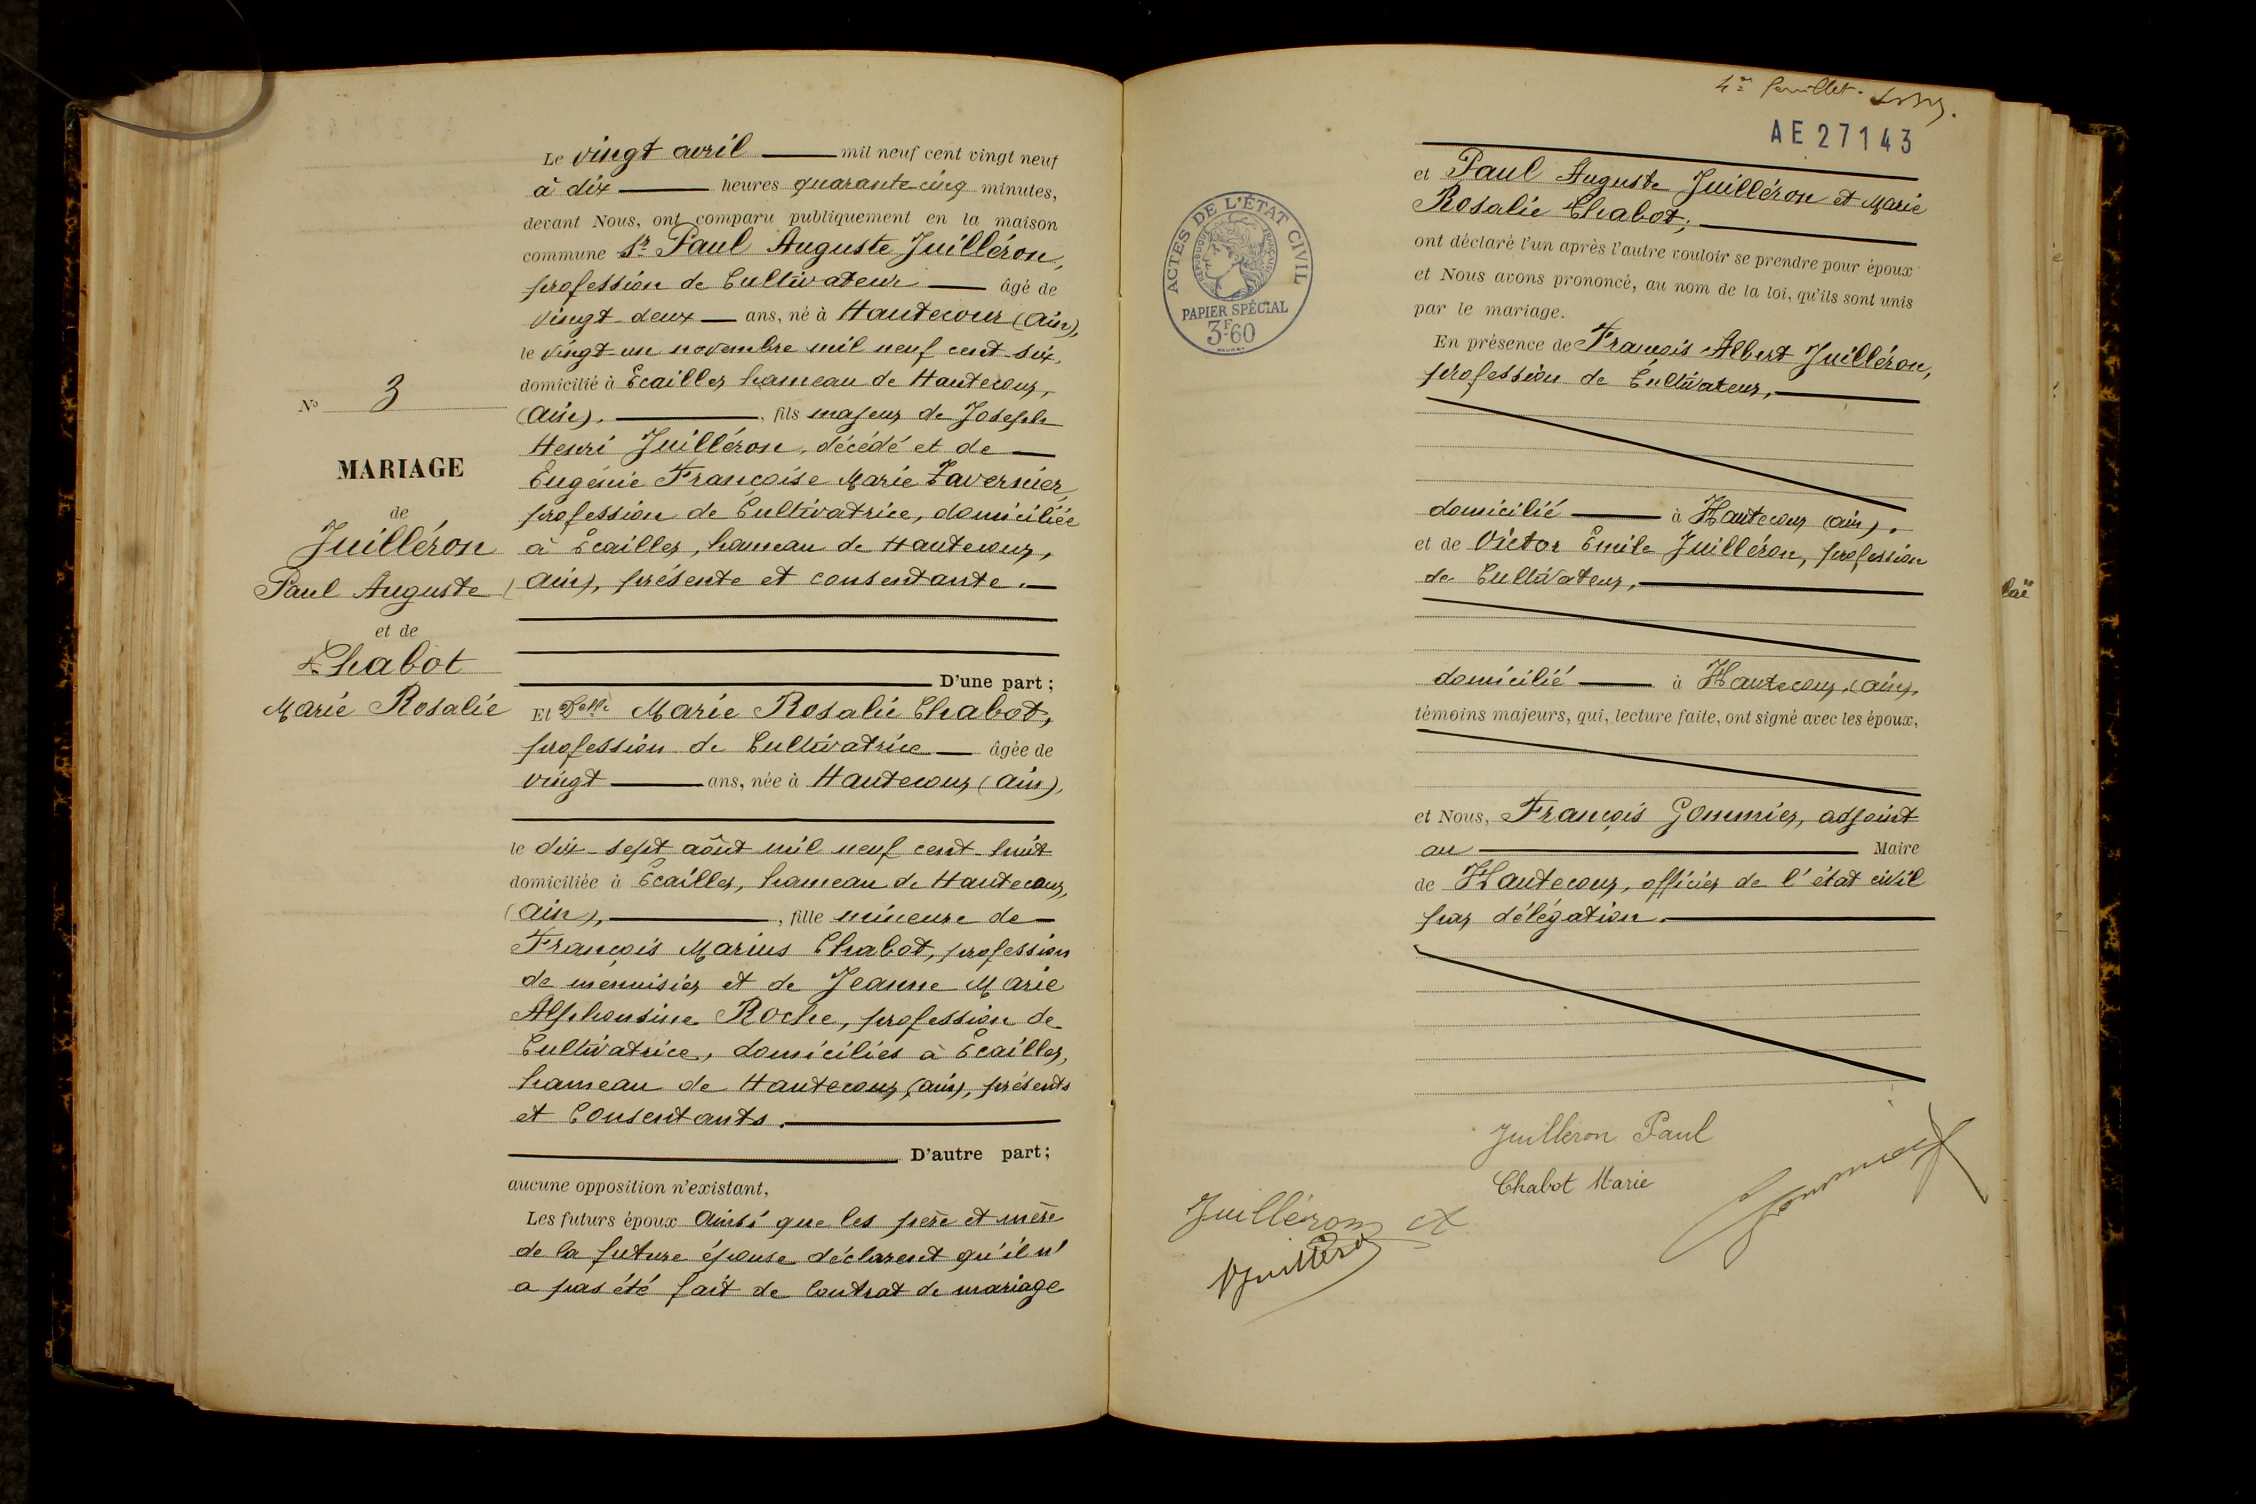 N° 3
MARIAGE
de
Juilléron
Paul Auguste
et de
Chabot
Marie Rosalie
Le vingt avril mil neuf cent vingt neuf
à dix heures quarante-cinq minutes,
devant Nous, ont comparu publiquement en la maison
commune Sr Paul Auguste Juilléron,
profession de Cultivateur âgé de
vingt deux ans, né à Hautecour (Ain),
le vingt-un novembre mil neuf cent-six,
domicilié à Ecailles hameau de Hautecour,
(Ain), fils majeur de Joseph
Henri Juilléron, décédé et de
Eugénie Françoise Marie Tavernier,
profession de Cultivatrice, domiciliée
à Ecailles, hameau de Hautecour,
(Ain), présente et consentante.
D'une part;
Et Delle Marie Rosalie Chabot,
profession de Cultivatrice âgée de
vingt ans, née à Hautecour (Ain),
le dix-sept août mil neuf cent-huit
domiciliée à Ecailles, hameau de Hautecour,
(Ain), fille mineure de
François Marius Chabot, profession
de menuisier et de Jeanne Marie
Alphonsine Roche, profession de
Cultivatrice, domiciliés à Ecailles,
hameau de Hautecour, (Ain), présents
et Consentants.
D'autre part;
aucune opposition n'existant,
Les futurs époux ainsi que les père et mère
de la future épouse déclarent qu'il n'
a pas été fait de Contrat de mariage
4me feuillet.
AE27143
ACTES DE L'ÉTAT CIVIL
RÉPUBLIQUE FRANÇAISE
PAPIER SPÉCIAL
3F60
et Paul Auguste Juilléron et Marie
Rosalie Chabot;
ont déclaré l'un après l'autre vouloir se prendre pour époux
et Nous avons prononcé, au nom de la loi, qu'ils sont unis
par le mariage.
En présence de François Albert Juilléron,
profession de Cultivateur,
domicilié à Hautecour (Ain),
et de Victor Emile Juilléron, profession
de Cultivateur,
domicilié à Hautecour, (Ain),
témoins majeurs, qui, lecture faite, ont signé avec les époux,
et Nous, François Gommier, adjoint
au Maire
de Hautecour, officier de l'état civil
par délégation.
Juilleron Paul
Chabot Marie
Gommier
Juilléron